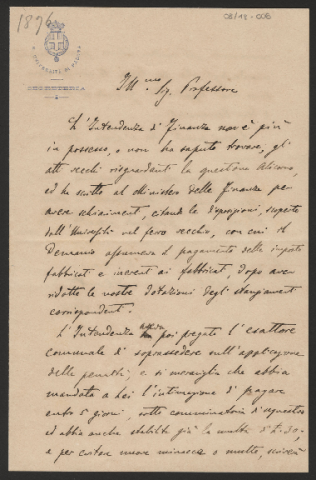 1896
08/13-006
R. UNIVERSITÀ DI PADOVA
SEGRETERIA
Ill.mo Sig. Professore
L'Intendenza di Finanza non è più
in possesso, o non ha saputo trovare, gli
atti vecchi risguardanti la questione
ed ha scritto al Ministero delle Finanze per
avere schiarimenti, citando le disposizioni, scoperte
dall'Università nel ferro vecchio, con cui il
Demanio assumeva il pagamento delle imposte
fabbricati e inerenti ai fabbricati, dopo aver
ridotte le nostre dotazioni degli stanziamenti
corrispondenti.
L'Intendenza aveva poi pregato l'esattore
comunale di soprassedere sull'applicazione
delle penalità, e si meraviglia che abbia
mandata a Lei l'intimazione di pagare
entro 5 giorni, sotto comminatoria di sequestro
ed abbia anche stabilito già la multa di £. 30;
e per evitare nuove minacce o multe, scriverà